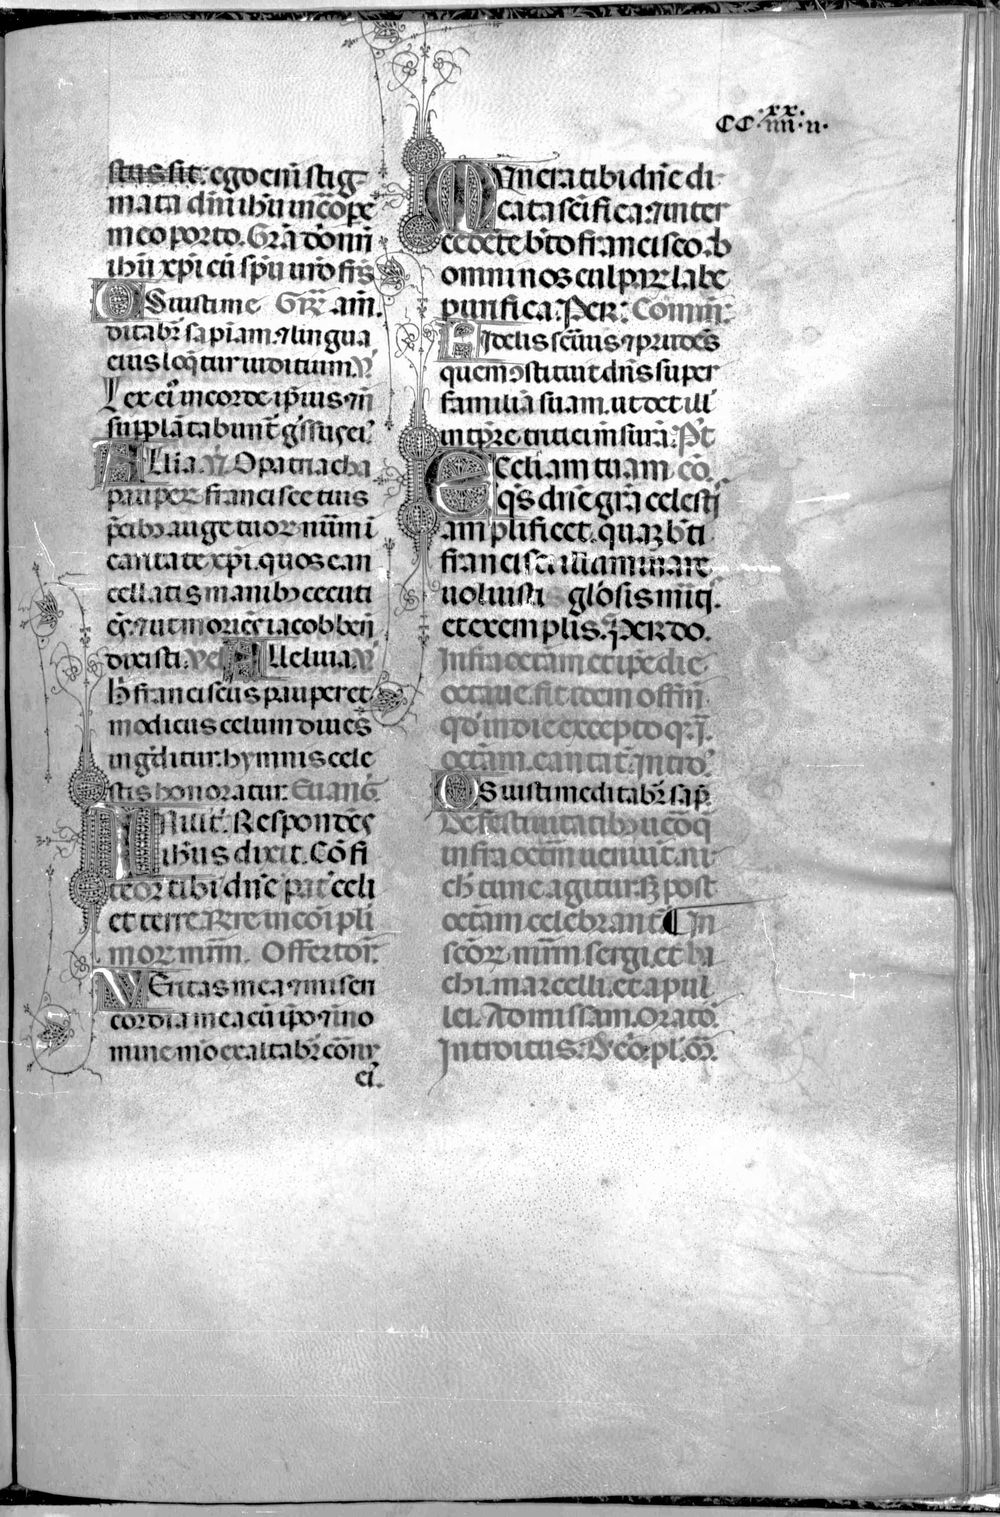 CC·xx·iiii·ii·
stus sit. ego eni stig
mata dni ihu in corpe
meo porto. Gra domi
ihu xpi cu spu uro frs
OS iusti me Gr. am.
ditabr sapiam. et lingua
eius loqtur iuditium. V
Lex ei in corde ipius. et n
supplatabunt gssus ei.
Alia. V O patriarcha
pauper francisce tuis
pcib auge tuor num i
caritate xpi. quos can
cellatis manib cecuti
ens. ut moriens iacob ben
dixisti. Vel Alleluia. V
h franciscus pauper et
modicus celum diues
ingditur. hymnis cele
stis honoratur. Euang.
IN illo t. Respondens
ihus dixit. Confi
teor tibi dne pat celi
et terre. Rre in coi pli
mor mrm. Offertor.
VEritas mea. et miseri
cordia mea cu ipo. et i no
mine meo exaltabr cornu
ei.
MUnera tibi dne di
cata scifica. et inter
cedete bto francisco. ab
omni nos culpar labe
purifica. Per. Comm.
Fidelis seruus. et prudes
quem ostituit dns super
familia suam. ut det illi
in tpre tritici msura. Pt
Ecclam tuam co.
qs dne gra celesti
amplificet. qua bti
francisci illuminare
uoluisti glosis mitis.
et exemplis. Per do.
Infra octam et ipe die
octaue. fit idem offm
qd in die excepto q. i.
octam. cantat. Intro.
OS iusti meditabr sap.
De festiuitatib ueo q
infra octam uenuit. ni
ch tunc agitur. s post
octam celebrant. In
scor mrm sergi. et ba
chi. marcelli. et apul
lei. Ad missam. Orato.
Introitus. Vco. pl. or.